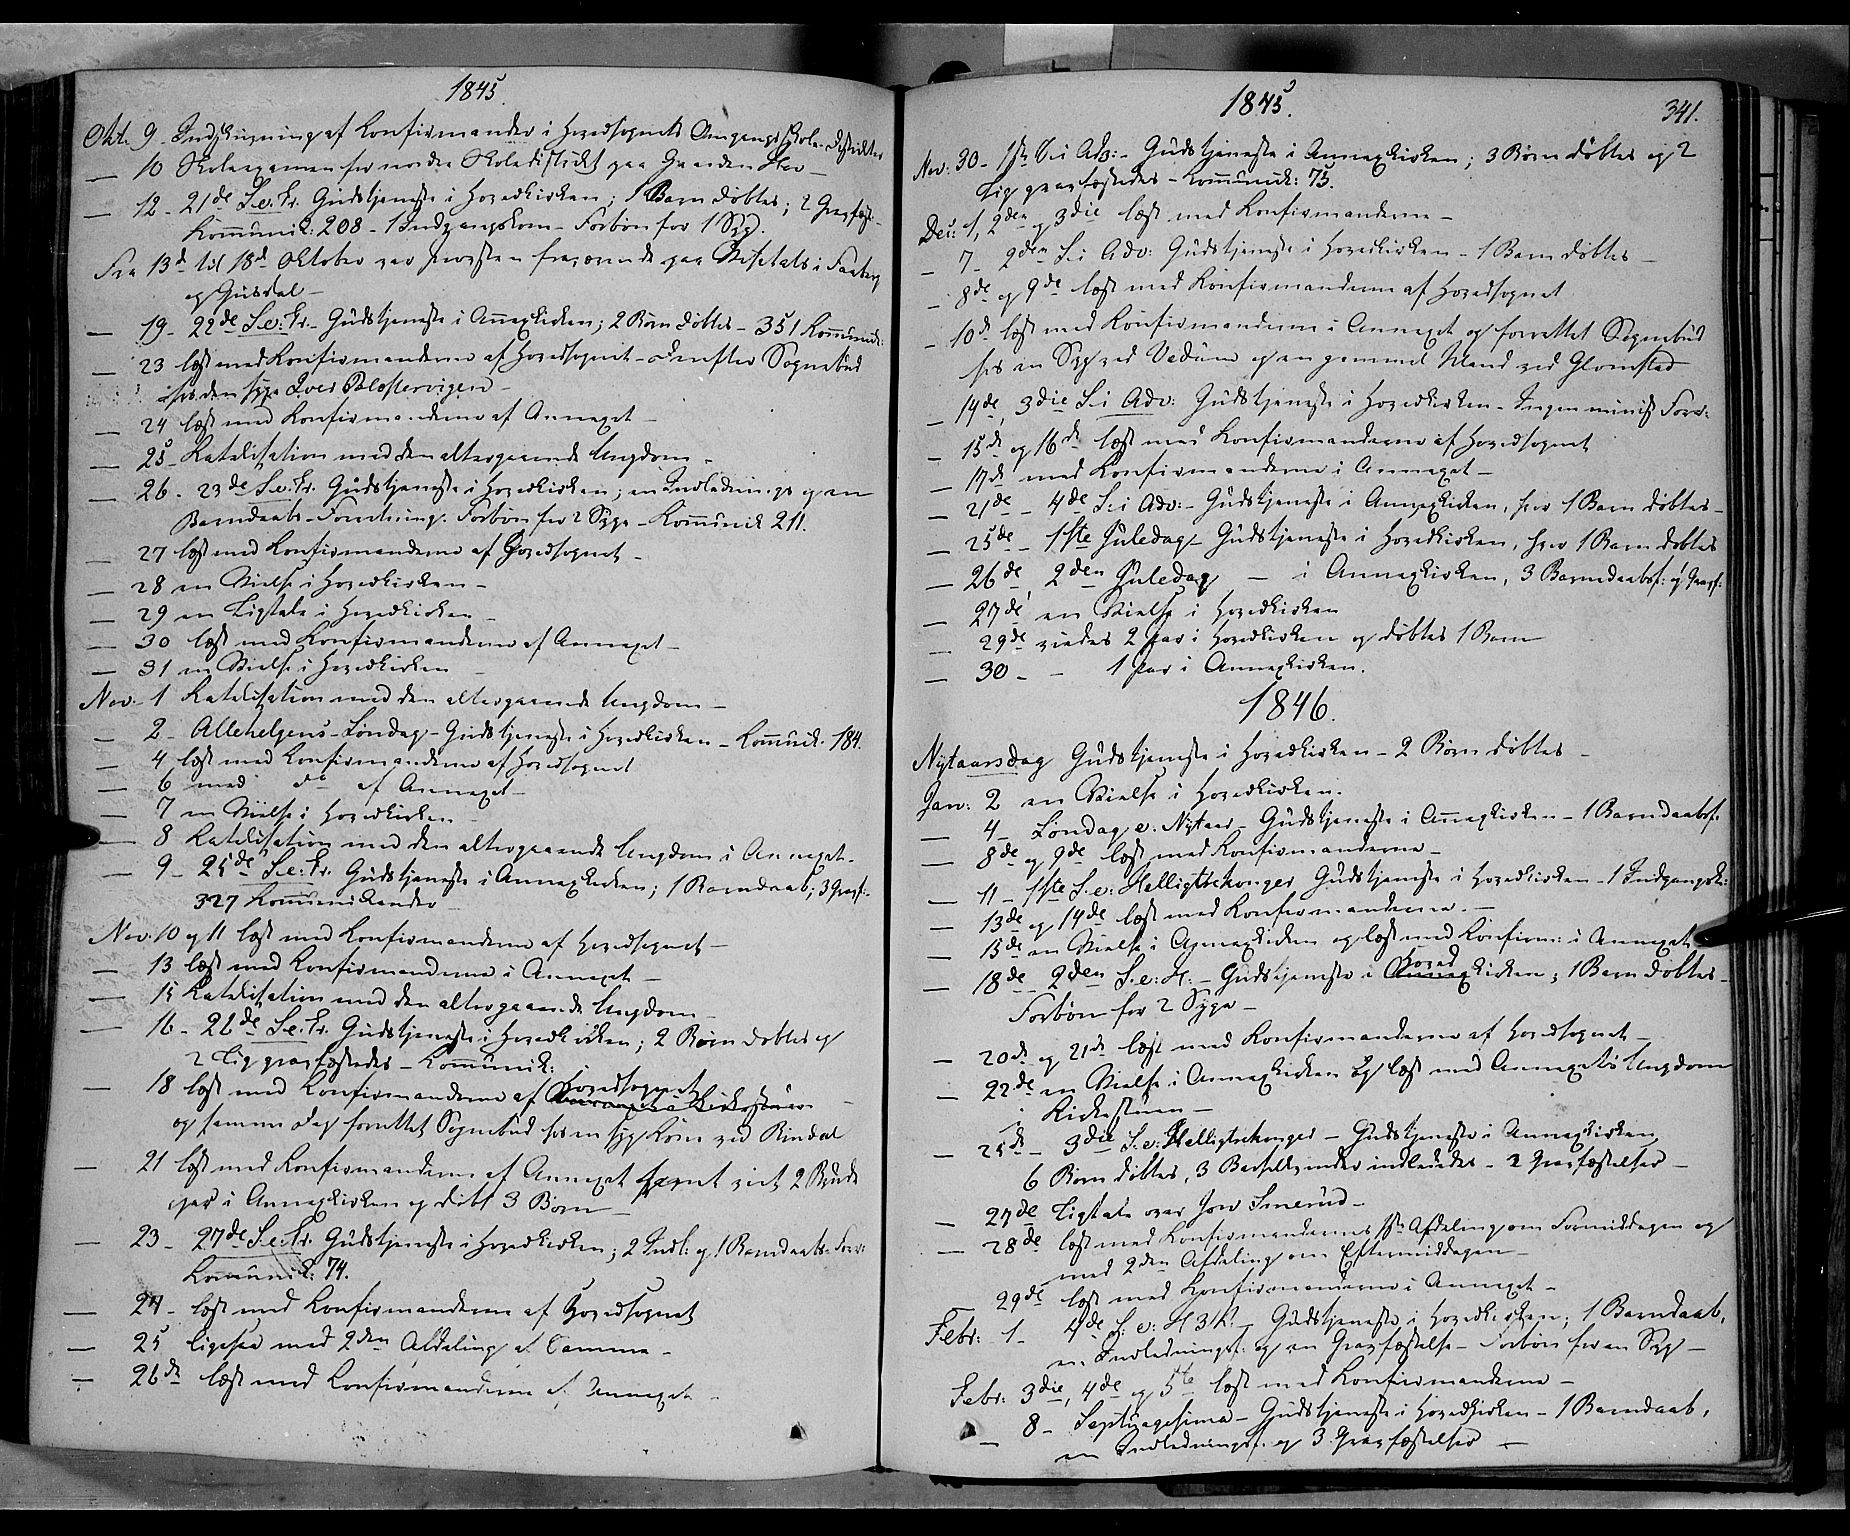 1845
Okt. 9 - Indskrivning af Konfirmander i Hovedsognets Omgangsskole-Distrikter
— 10 Skoleexamen for nordre Skoledistrikt paa Gaarden
— 12 - 21de S.e.Tr. Gudstjeneste i Hovedkirken; 1 Barn døbtes; 2 Gravfæst.
Kommunik: 208 - 1 Indgangskone - Forbøn for 1 Syg.
Fra 13de til 18de Oktober var Provsten fraværende paa Visitats i Faaberg
og Gusdal —
— 19 - 22de S.e.Tr. - Gudstjeneste i Annexkirken; 2 Børn døbtes - 351 Kommunik:
— 23 læst med Konfirmanderne af Hovedsognet - derefter Sognebud
hos den syge Iver
— 24 læst med Konfirmanderne af Annexet —
— 25 - Katekisation med den altergaaende Ungdom -
— 26 - 23de S.e.Tr. Gudstjeneste i Hovedkirken; en Indlednings og en
Barndaabs-Forretning. Forbøn for 2 Syge - Kommunik 211.
— 27 læst med Konfirmanderne af Hovedsognet —
— 28 en Vielse i Hovedkirken —
— 29 en Ligtale i Hovedkirken —
— 30 læst med Konfirmanderne af Annexet —
— 31 en Vielse i Hovedkirken —
Nov. - 1 Katekisation med den altergaaende Ungdom —
— 2 - Allehelgens-Søndag - Gudstjeneste i Hovedkirken - Kommunik. 184.
— 4 læst med Konfirmanderne af Hovedsognet
— 6 med do af Annexet —
— 7 en Vielse i Hovedkirken —
— 8 Katekisation med den altergaaende Ungdom i Annexet -
— 9 - 25de S.e.Tr. Gudstjeneste i Annexkirken; 1 Barndaab; 3 Gravf:
327 Kommunikander
Nov: 10 og 11 læst med Konfirmanderne af Hovedsognet —
— 13 læst med Konfirmanderne i Annexet —
— 15 Katekisation med den altergaaende Ungdom —
— 16 - 26de S.e.Tr. Gudstjeneste i Hovedkirken; 2 Børn døbtes og
2 Lig gravfæstedes - Kommunik:
— 18 læst med Konfirmanderne af Hovedsognet
og samme Dag forrettet Sognebud hos en syg Kone ved Rindal
— 21 læst med Konfirmanderne af Annexet samt viet 2 Brude
par i Annexkirken og døbt 3 Børn —
— 23 - 27de S.e.Tr. Gudstjeneste i Hovedkirken; 2 Indl: og 1 Barndaabs-Forr:
Kommunik: 74.
— 24 - læst med Konfirmanderne af Hovedsognet
— 25 ligesaa med 2den Afdeling af Samme -
— 26de læst med Konfirmanderne af Annexet -
1845.
341.
Nov: 30 - 1ste S. i Adv: - Gudstjeneste i Annexkirken; 3 Børn døbtes og 2
Lig gravfæstedes - Kommunik: 75.
Dec: 1, 2den og 3die læst med Konfirmanderne —
— 7 - 2den S. i Adv: Gudstjeneste i Hovedkirken - 1 Barn døbtes —
— 8de og 9de læst med Konfirmanderne af Hovedsognet
— 10de læst med Konfirmanderne i Annexet og forrettet Sognebud
hos en Syg ved Vedum og en gammel Mand ved Glomstad
— 14de, 3die S. i Adv: Gudstjeneste i Hovedkirken - Ingen minist Forr:
— 15de og 16de læst med Konfirmanderne af Hovedsognet
— 17de med Konfirmanderne i Annexet —
— 21de - 4de S. i Adv: - Gudstjeneste i Annexkirken, hvor 1 Barn døbtes —
— 25de - 1ste Juledag - Gudstjeneste i Hovedkirken, hvor 1 Barn døbtes
— 26de, 2den Juledag — i Annexkirken, 3 Barndaabsf: 1 Gravf:
— 27de, en Vielse i Hovedkirken
— 29de viedes 2 Par i Hovedkirken og døbtes 1 Barn
— 30 - — 1 Par i Annexkirken.
1846.
Nytaarsdag Gudstjeneste i Hovedkirken - 2 Børn døbtes —
Jan: 2 en Vielse i Hovedkirken.
— 4 - Søndag e. Nytaar - Gudstjeneste i Annexkirken - 1 Barndaabsf.
— 8de og 9de læst med Konfirmanderne —
— 11 - 1ste S. e: Helligtrekonger Gudstjeneste i Hovedkirken - 1 Indgangsk:
— 13de og 14de læst med Konfirmanderne. —
— 15de en Vielse i Annexkirken og læst med Konfirm: i Annexet
— 18de - 2den S. e: H: - Gudstjeneste i Hovedkirken; 1 Barn døbtes —
Forbøn for 2 Syge —
— 20de og 21de læst med Konfirmanderne af Hovedsognet —
— 22de en Vielse i Annexkirken og læst med Annexets Ungdom
i Kirkestuen —
— 25de - 3die S. e: Helligtrekonger - Gudstjeneste i Annexkirken
6 Børn døbtes, 3 Barselkvinder indlededes - 2 Gravfæstelser —
— 27de Ligtale over Jon Smerud —
— 28de læst med Konfirmandernes 1ste Afdeling om Formiddagen og
med 2den Afdeling om Eftermiddagen —
29de læst med Konfirmanderne i Annexet —
Febr: 1 - 4de S. e: H3K. - Gudstjeneste i Hovedkirken; 1 Barndaab,
en Indledningsf. og en Gravfæstelse - Forbøn for en Syg —
Febr: 3die, 4de og 5te læst med Konfirmanderne —
— 8 - Septuagesima - Gudstjeneste i Hovedkirken - 1 Barndaab,
en Indledningsf. og 3 Gravfæstelser —